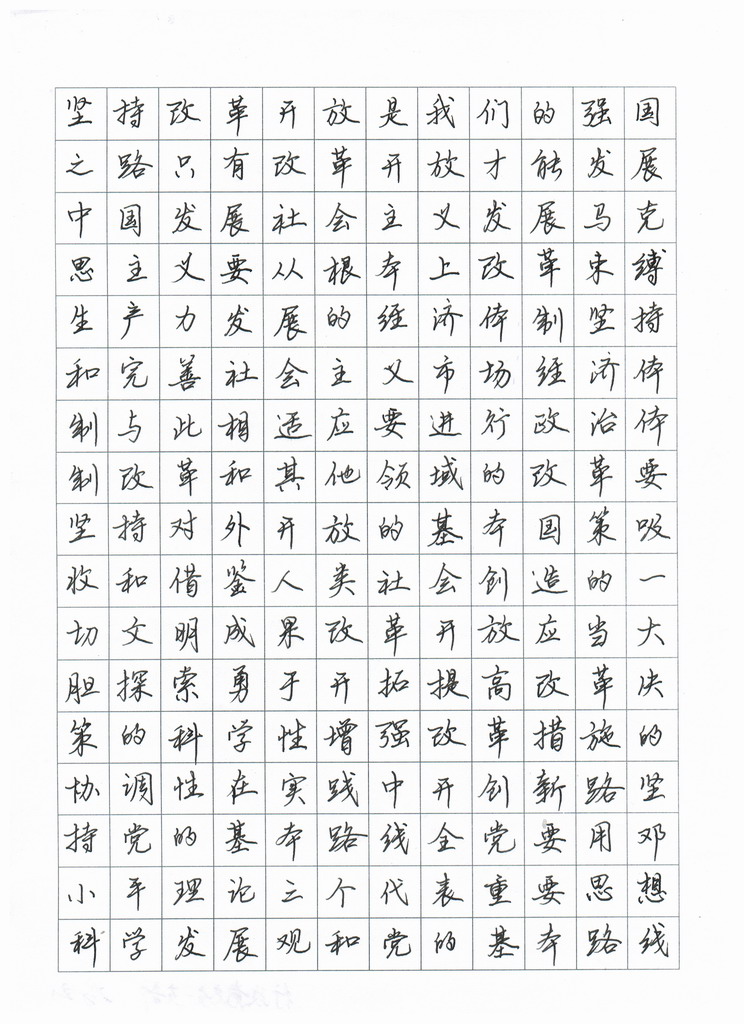 坚持改革开放是我们的强国
之路只有改革开放才能发展
中国发展社会主义发展马克
思主义要从根本上改革束缚
生产力发展的经济体制坚持
和完善社会主义市场经济体
制与此相适应要进行政治体
制改革和其他领域的改革要
坚持对外开放的基本国策吸
收和借鉴人类社会创造的一
切文明成果改革开放应当大
胆探索勇于开拓提高改革决
策的科学性增强改革措施的
协调性在实践中开创新路坚
持党的基本路线全党要用邓
小平理论三个代表重要思想
科学发展观和党的基本路线